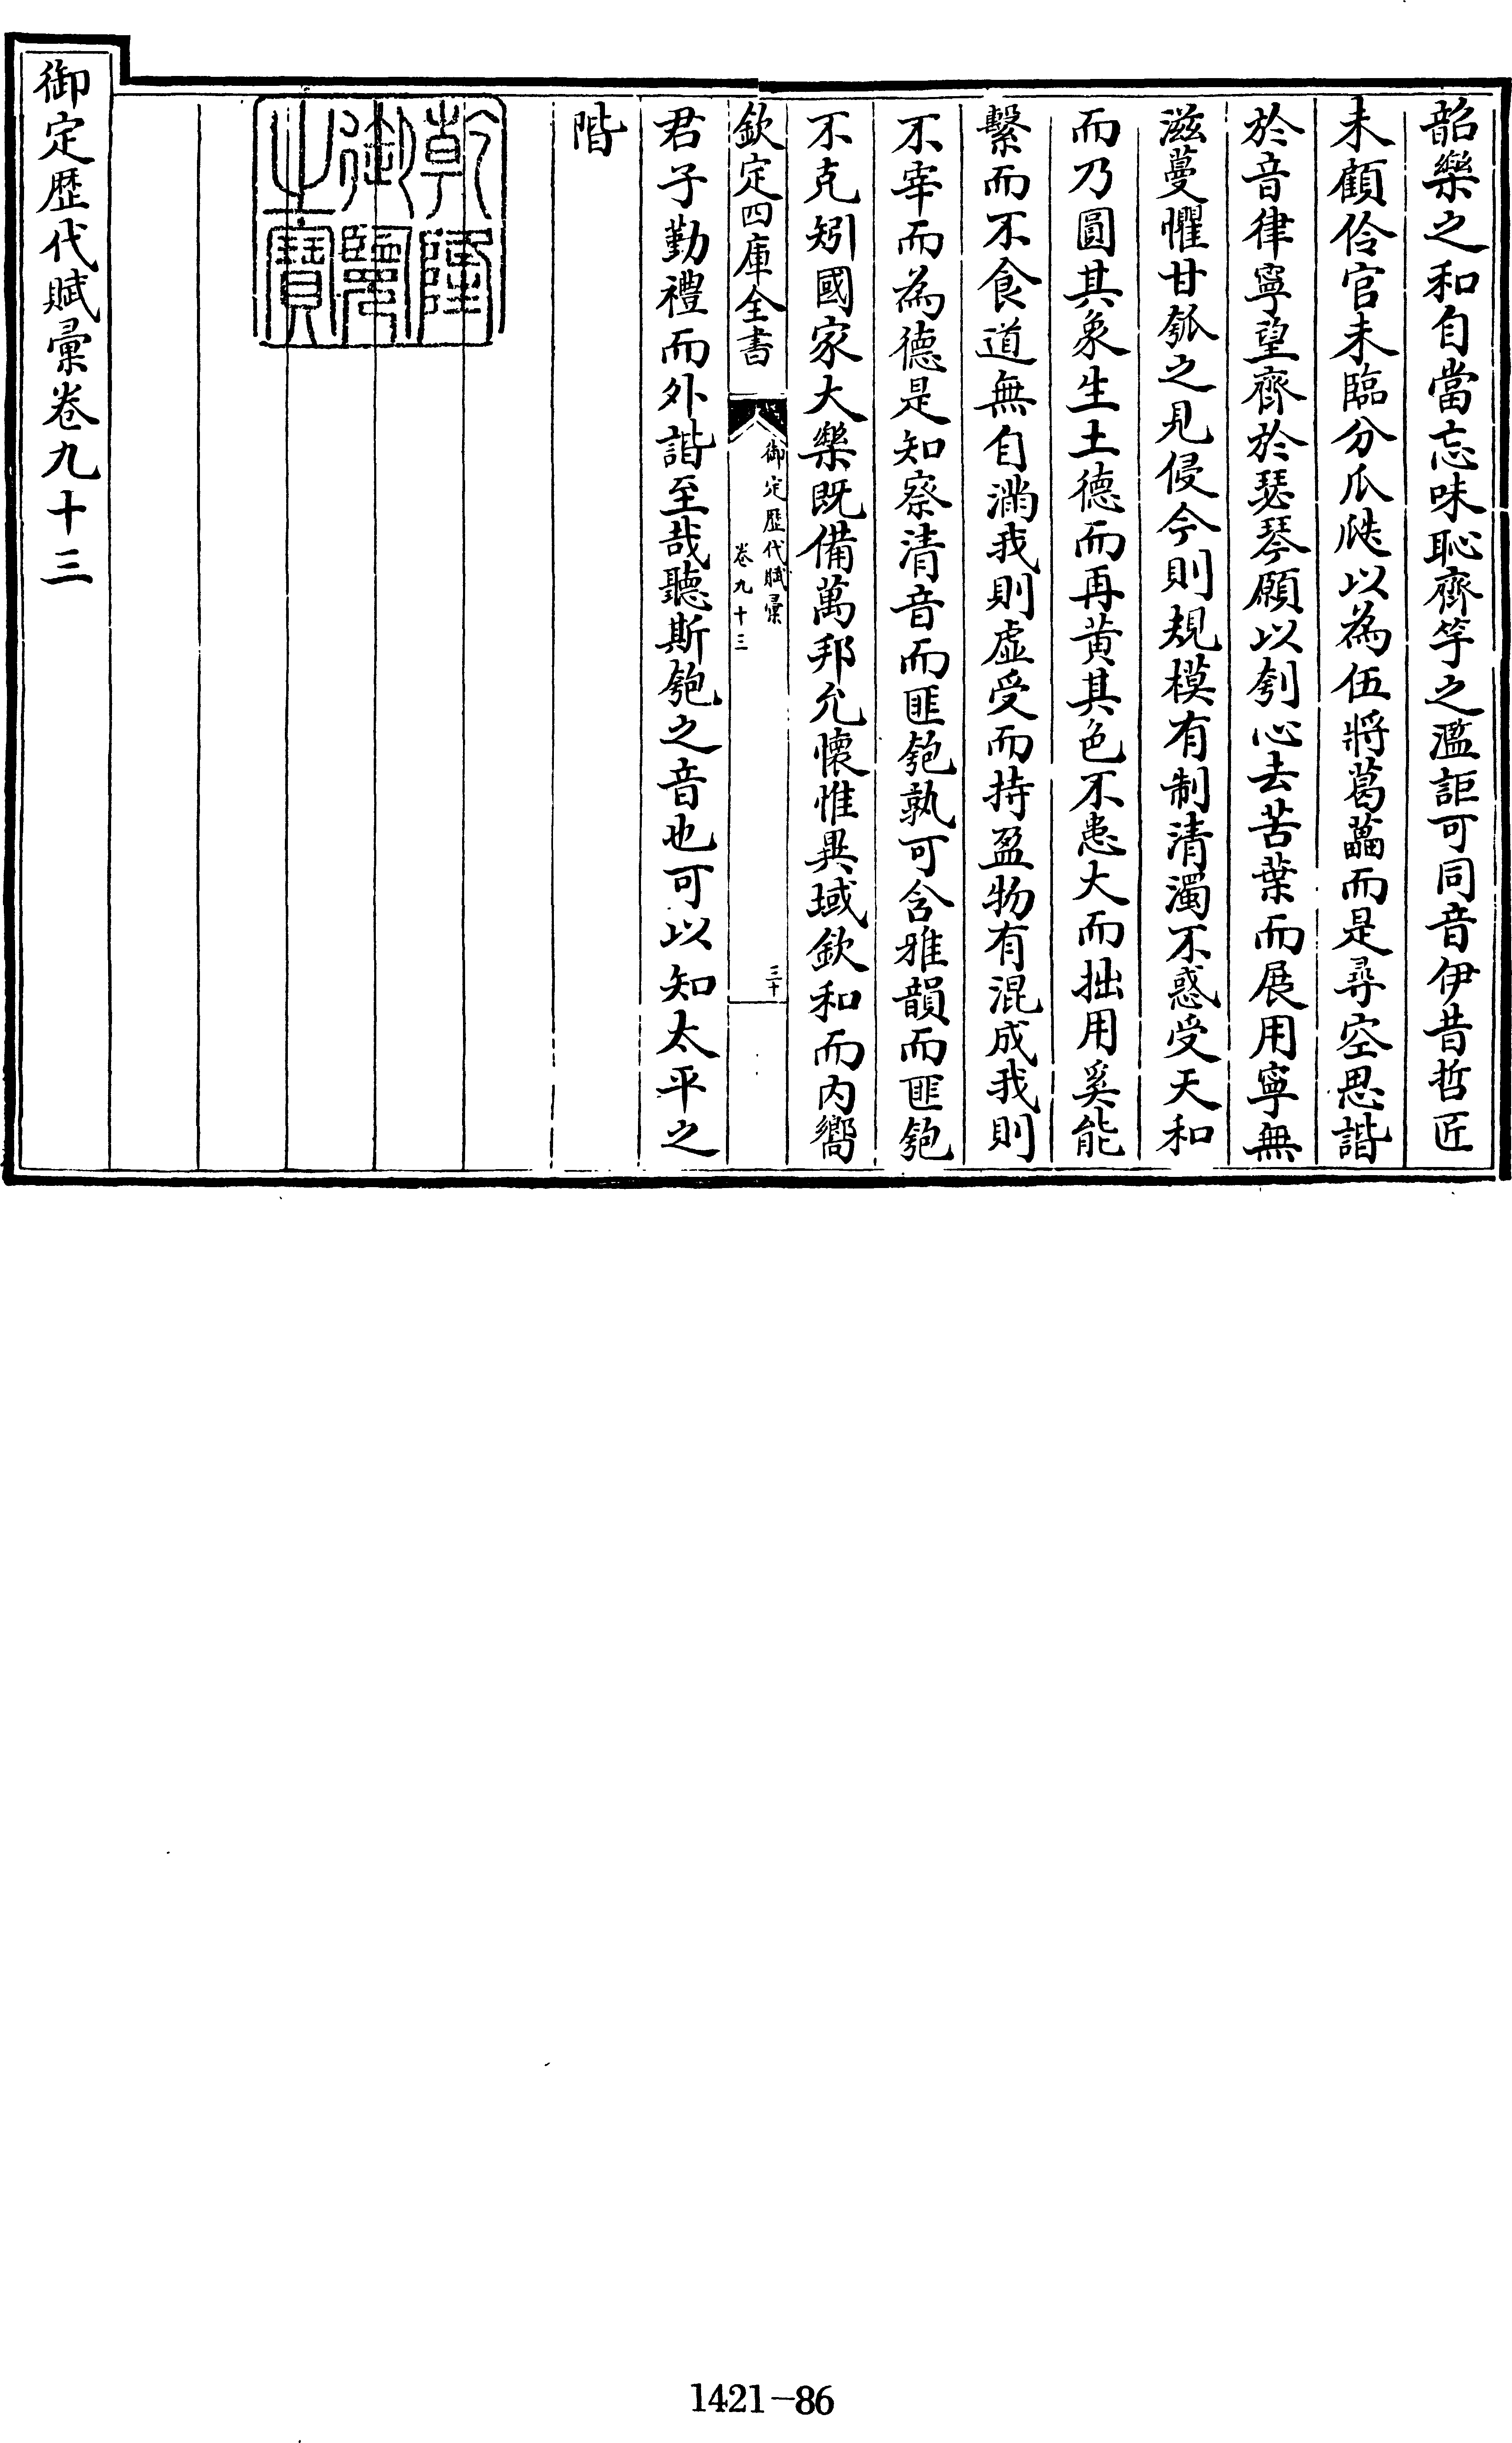 韶樂之和自當忘味恥齊竽之濫詎可同音伊昔哲匠
未顧伶官未臨分瓜瓞以為伍將葛藟而是尋空思諧
於音律寧望齊於瑟琴願以刳心去苦葉而展用寧無
滋蔓懼甘瓠之見侵今則規模有制清濁不惑受天和
而乃圓其象生土德而再黃其色不患大而拙用奚能
繫而不食道無自滿我則虛受而持盈物有混成我則
不宰而為德是知察清音而匪匏孰可含雅韻而匪匏
不克矧國家大樂既備萬邦允懷惟異域欽和而内嚮
欽定四庫全書
御定歷代賦彙
卷九十三
三十
君子勤禮而外諧至哉聽斯匏之音也可以知太平之
階
乾隆
御覽
之寶
御定歷代賦彙卷九十三
1421-86